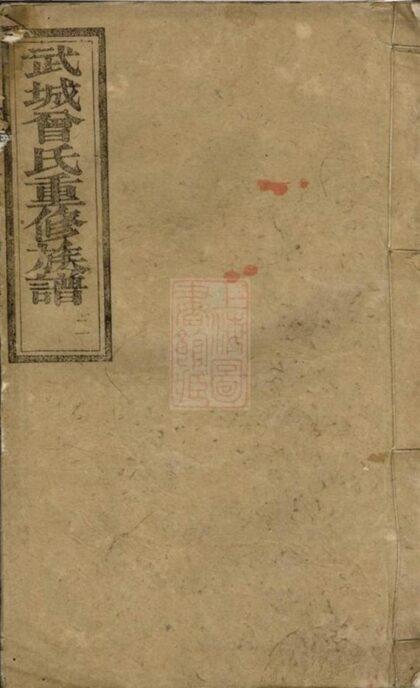 武城曾氏重修族譜
二
上海圖
書館藏